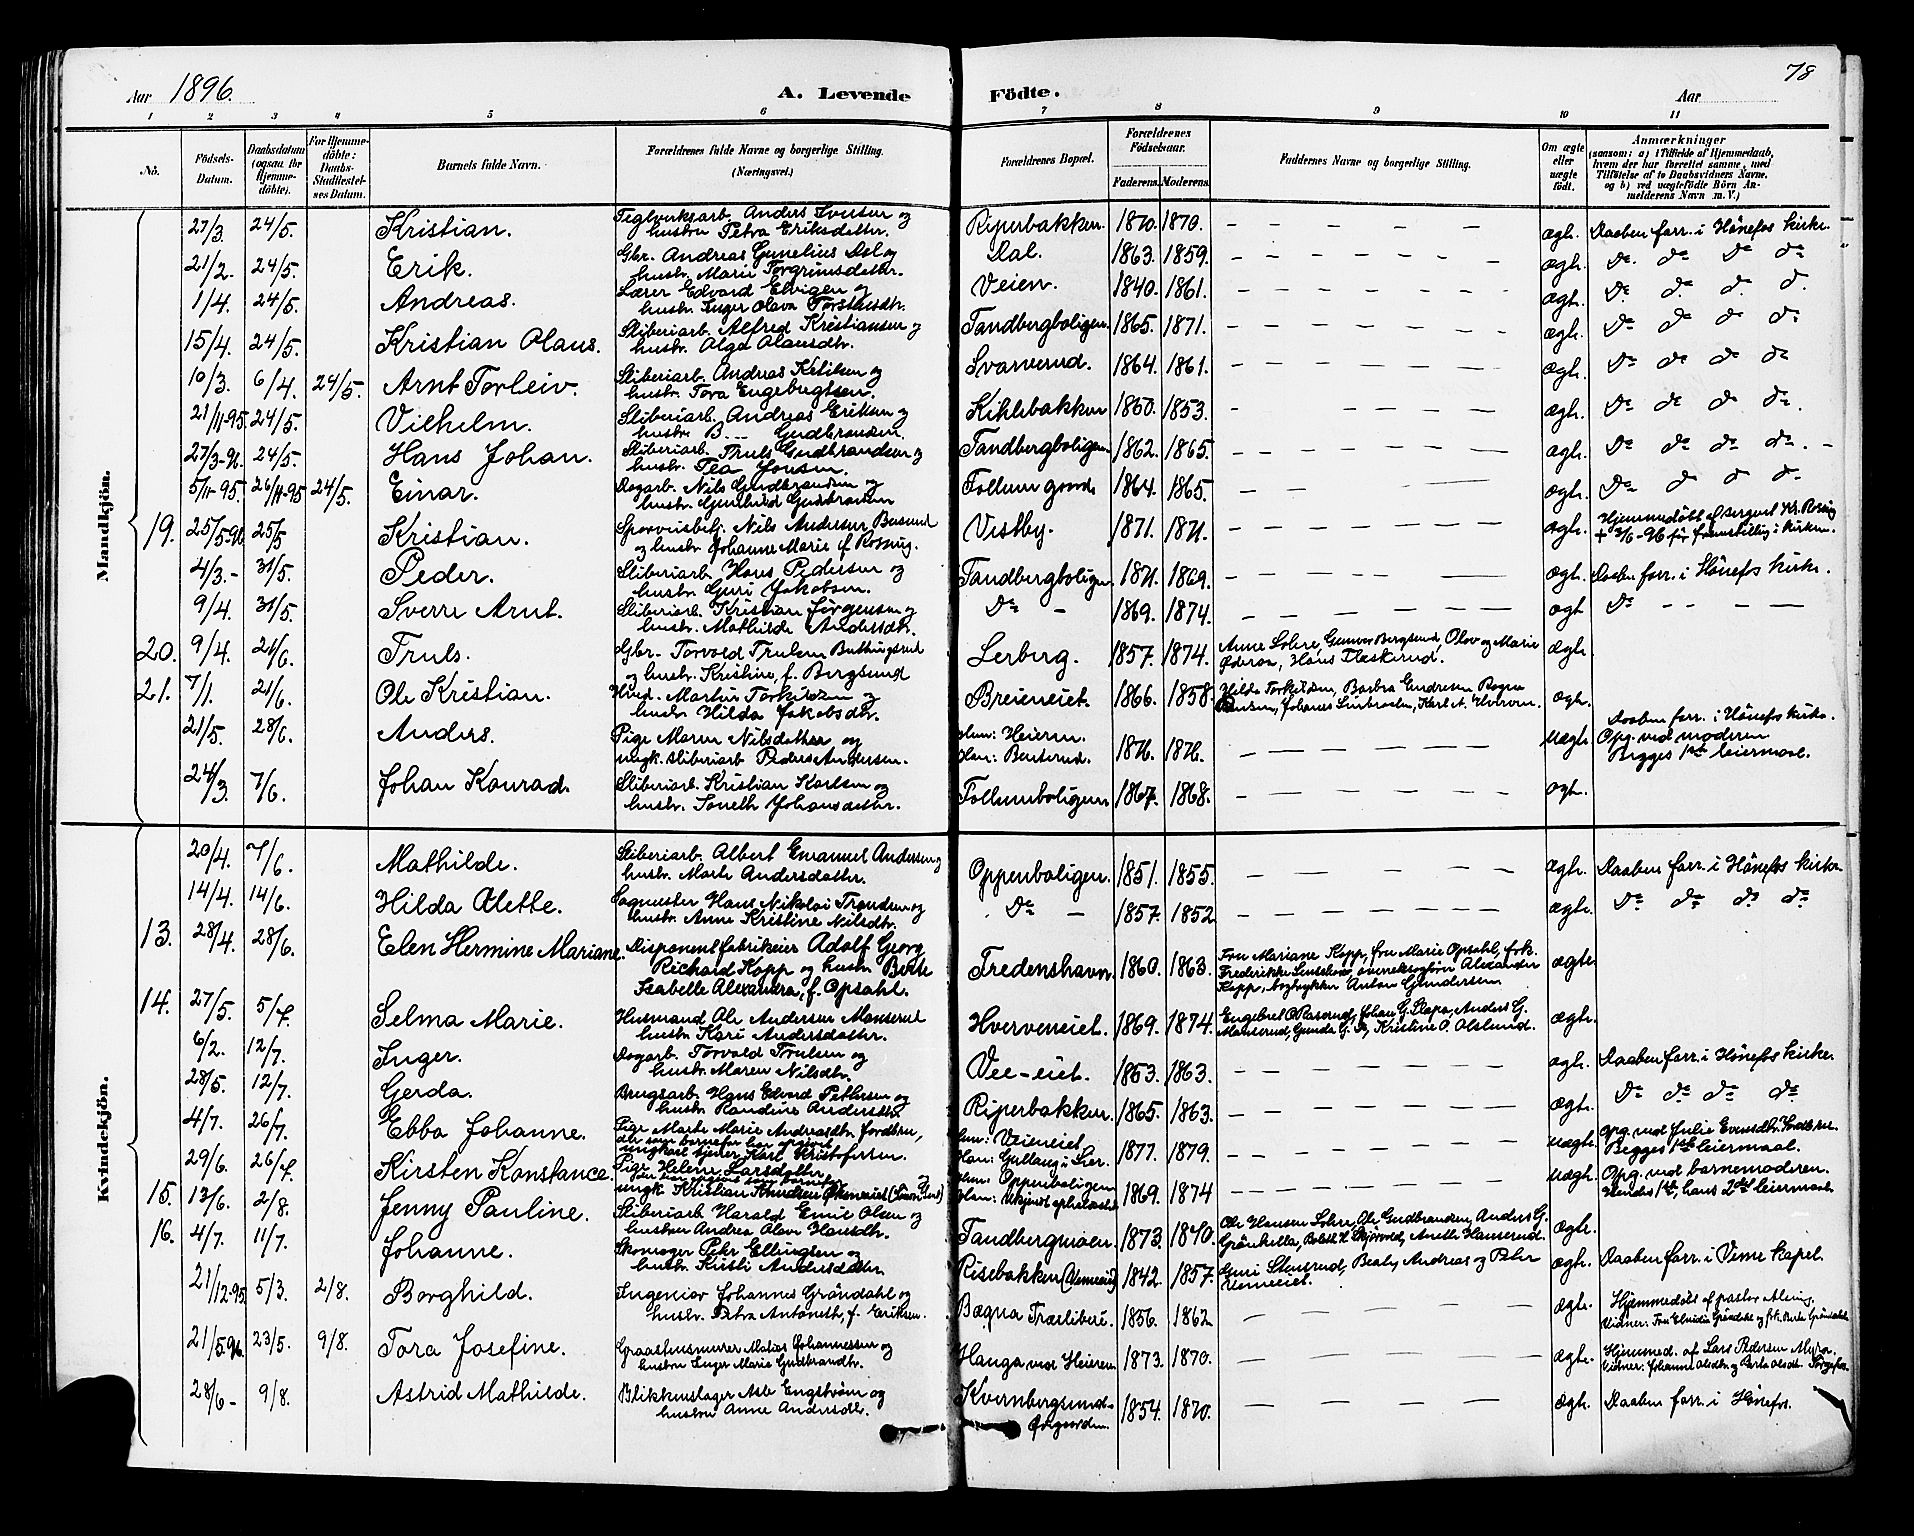 Aar 1896.
A. Levende Födte.
78
Aar
1 2 3 4 5 6 7 8 9 10 11
No.
Födsels-Datum.
Daabsdatum (ogsaa for Hjemme-döbte).
For Hjemme-döbte: Daabs-Stadfæstel-ses Datum.
Barnets fulde Navn.
Forældrenes fulde Navne og borgerlige Stilling.
(Næringsvei.)
Forældrenes Bopæl.
Forældrenes Födselsaar.
Faderens. Moderens.
Faddernes Navne og borgerlige Stilling.
Om ægte eller uægte födt.
Anmærkninger
(saasom: a) i Tilfælde af Hjemmedaab, hvem der har forrettet samme, med Tilföielse af to Daabsvidners Navne, og b) ved uægtefödte Börn An-melderens Navn m. V.)
Mandkjön.
27/3. 24/5. Kristian. Teglverksarb. Anders Iversen og hustru Petra Eriksdatter. Riperbakken. 1870. 1870. ægte. Daaben forr. i Hönefos kirke.
21/2. 24/5. Erik. Gbr. Andreas Gunelius Dal og hustr. Marie Torgrimsdatter. Dal. 1863. 1859. ægte. Do. do do do
1/4. 24/5. Andreas. Lærer Edvard Elvigen og hustr. Inger Olava Torstensdtr. Veien. 1840. 1861. ægte. Do do. do do.
15/4. 24/5. Kristian Olaus. Sliberiarb. Alfred Kristiansen og hustr. Olga Olausdtr. Tandbergboligen. 1865. 1871. ægte. Do do do do
10/3. 6/4. 24/5. Arnt Torleiv. Sliberiarb. Andreas og hustr. Tora Engebregtsen. Svarverud. 1864. 1861. ægte. Do do do do
21/11-95. 24/5. Vilhelm. Sliberiarb. Andreas Eriksen og hustru B--- Gudbrandsen. Kihlebakken 1853. ægte. Do do do do.
27/3-96. 24/5. Hans Johan. Sliberiarb. Truls Gudbrandsen og hustr. Tea Jonsen. Tandbergboligen 1862. 1865. ægte. Do do do do.
5/11-95. 26/11-95 24/5. Einar. Dagarb. Nils Gudbrandsen og hustr. Gunhild Gudbrandsen Follum 1864. 1865. ægte. Do do do do.
19. 25/5-96 25/5 Kristian. Nils Andersen Busund og hustr. Johanne Marie f. Rossing. Vestby. 1871. 1871. ægte. Hjemmedöbt af Kr. Rossing + 3/6-96 för fremstilling i kirken.
4/3.- 31/5. Peder. Sliberiarb. Hans Pedersen og hustr. Guri Jakobsen. Tandbergboligen 1871. 1869. ægte. Daaben forr. i Hönefos kirke.
9/4. 31/5. Sverre Arnt. Sliberiarb. Kristian Jörgensen og hustr. Mathilde Andersdtr. Do - 1869. 1874. ægte Do
20. 9/4. 21/6. Truls. Gbr. Torvald Trulsen Buttingsrud og hustr. Kristine, f. Bergsund Lerberg. 1857. 1874. Anne Lohre, Gunvor Bergsund, Olov og Marie Hans Flæskerud. ægte
21. 7/1. 21/6. Ole Kristian. Martin Torkildsen og hustr. Hilda Jakobsdtr. Breieneiet. 1866. 1858. Hilda Torkildsen, Barbra Endresen Johanes Karl A. ægte.
21/5. 28/6. Anders. Pige Maren Nilsdatter og ungk. Sliberiarb Peder Andersen. Hun: Heieren. Han: 1876. 1876. uægte Daaben forr. i Hönefos kirke. Opg. ved moderen Begges 1ste leiermaal.
24/3. 7/6. Johan Konrad. Sliberiarb. Kristian Karlsen og hustr. Johansdatter. Follumboligen 1867. 1868. ægte.
Kvindekjön.
20/4. 7/6. Mathilde. Sliberiarb. Albert Emanuel Andersen og hustr. Marte Andersdatter. Oppenboligen. 1851. 1855. ægte. Daaben forr. i Hönefos kirke.
14/4. 14/6. Hilda Alette. Sagmester Hans Nikolai Trondsen og hustr. Anne Kristine Nilsdtr. Do - 1857. 1852 ægte. Do do do do
13. 28/4. 28/6. Elen Hermine Mariane. Disponent fabrikeier Adolf Georg Richard Kopp og hustru Berte Isabelle Alexandra, f. Opsahl. Fredenshavn 1860. 1863. Fru Mariane Kopp, fru Marie Opsahl, frk. Frederikke Alexander Kopp, Anton Gundersen ægte
14. 27/5. 5/7. Selma Marie. Husmand Ole Andersen Manserud hustr. Kari Andersdatter. Hverveneiet. 1869. 1874. Engebret O. Raserud, Johan G. Anders G. Manserud, Gunda G. Kristine O. ægte.
6/2. 12/7. Inger. Dagarb. Torvald Trulsen og hustr. Maren Nilsdtr. Vee-eiet. 1853. 1863. ægte. Daaben forr. i Hönefos kirke.
28/5. 12/7. Gerda. Brugsarb. Hans Edvard Pettersen og hustr. Randine Andersdtr. Riperbakken 1865. 1863. ægte. Do do do do
4/7. 26/7. Ebba Johanne. Pige Marte Marie Andreasdtr. Jordbru, der som barnefar har opgivet ungkarl tjener Karl Kristofersen. Hun: Veieneiet. Han: i Lier. 1877. 1879. uægte. Opg. ved Julie Begges 1ste leiermaal.
29/6. 26/7. Kirsten Konstance. Pige Helene Larsdatter, ungk. Kristian Knudsen Hun: Oppenboligen Han: ukjendt opholdssted 1869. 1874 uægte. Opg. ved barnemoderen. Hendes 1ste, hans 2det leiermaal.
15. 13/6. 2/8. Jenny Pauline. Sliberiarb. Harald Emil Olsen og hustru Andrea Olava Hansdtr. Tandbergmoen 1873. 1870. Ole Hansen Lohre, Ole Gudbrandsen, Anders G. Grönhella, Anette Hanserud. ægte.
16. 4/7. 11/7. Johanne. Skomager Pehr Ellingsen og hustr. Kisti Andersdatter Risebakken (Vemeeiet) 1842. 1857. Guri Stensrud, Beate, Andreas og Peter Vemeeiet. ægte. Daaben forr. i Veme kapel.
21/12-95. 5/3. 2/8. Borghild. Ingeniör Johannes Gröndahl og hustr. Petra Antonette, f. Eriksen. Bægna Træsliberi. 1856. 1862 ægte. Hjemmedöbt af pastor Vidner: Fru
21/5.96. 23/5. 9/8. Tora Josefine. Graastensmurer Matias Johannessen og hustru Inger Marie Gudbrandtr. Hauga ved Heieren 1873. 1870. ægte. Hjemmed. af Lars Pedersen Vidner: Johanne Olsdtr. og Berte Olsdtr.
28/6- 9/8. Astrid Mathilde. Blikkenslager Engström og hustru Anne Andersdtr. Kvernbergsund- 1854. 1870. ægte. Daaben forr. i Hönefos.